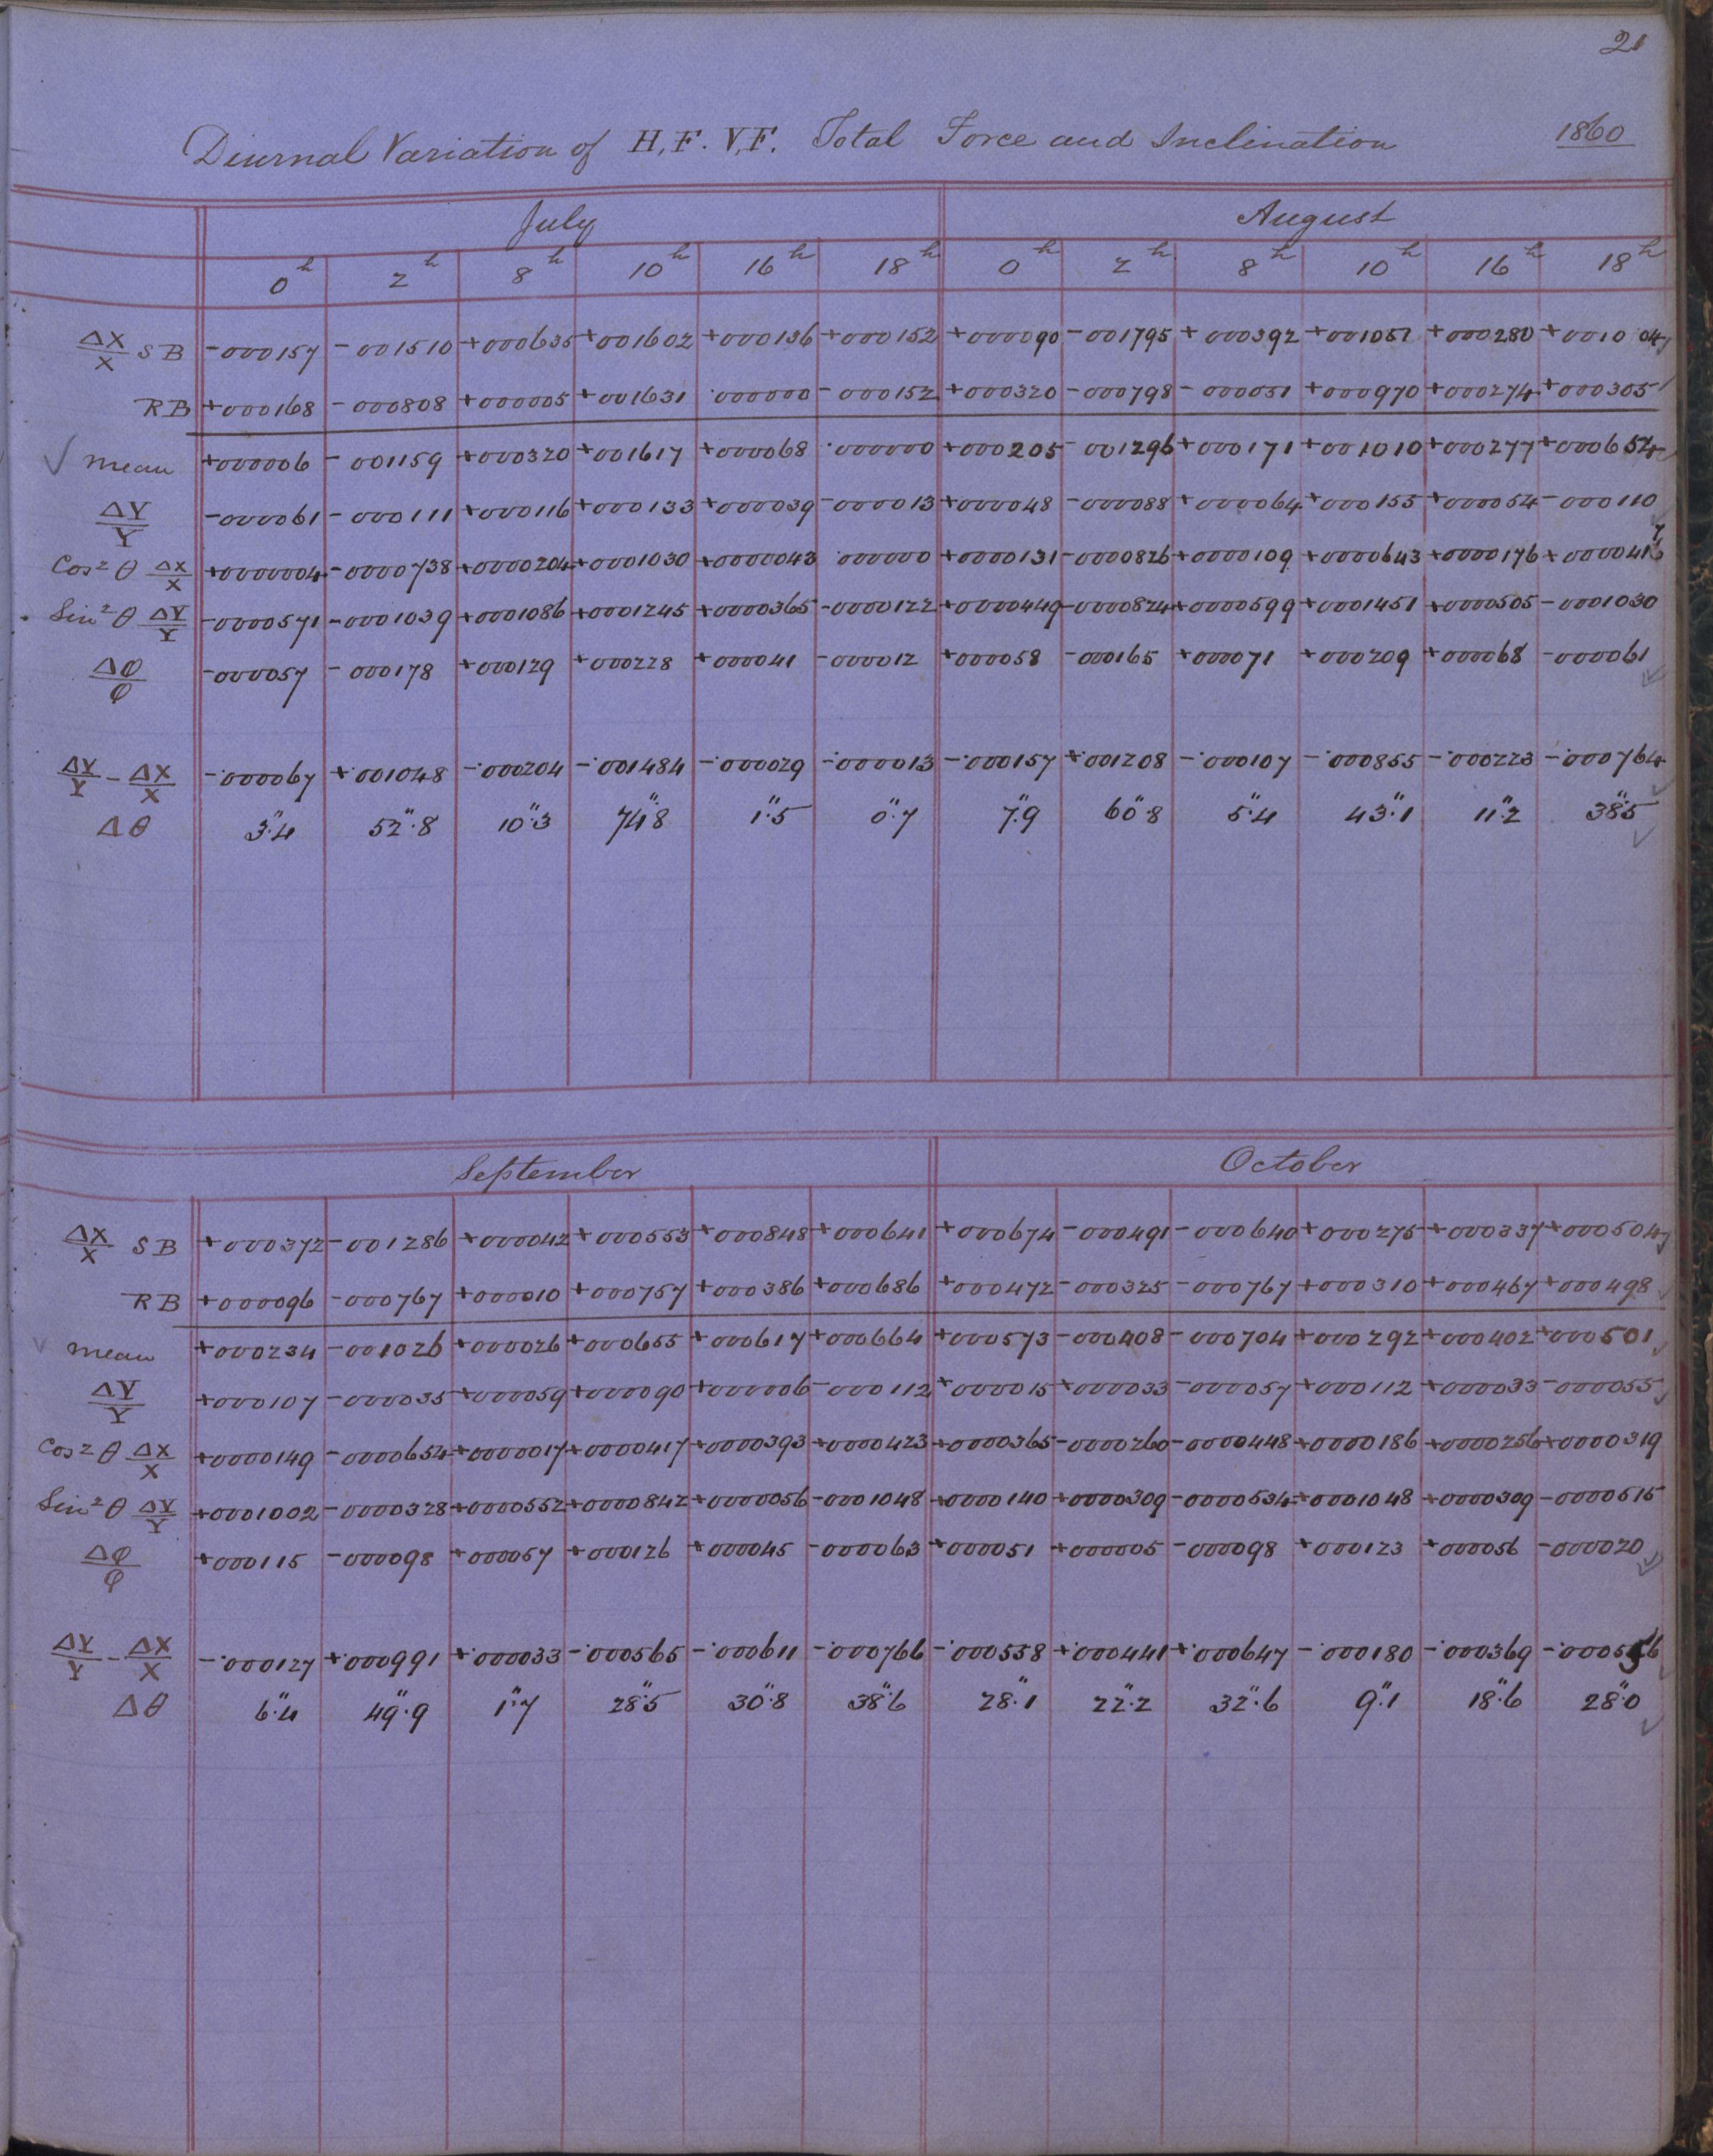 21
Diurnal Variation of H.F. V.F. Total Force and Inclination 1860
July August
0h 2h 8h 10h 16h 18h 0h 2h 8h 10h 16h 18h
ΔX/X SB -000157 -001510 +000635 +001602 +000136 +000152 +000090 -001795 +000392 +001051 +000280 +001004
RB +000168 -000808 +000005 +001631 ·000000 -000152 +000320 -000798 -000051 +000970 +000274 +000305
√ mean +000006 -001159 +000320 +001617 +000068 ·000000 +000205 -001296 +000171 +001010 +000277 +000654
ΔY/Y -000061 -000111 +000116 +000133 +000039 -000013 +000048 -000088 +000064 +000155 +000054 -000110
Cos²θ ΔX/X +0000004 -0000738 +0000204 +0001030 +0000043 ·000000 +0000131 -0000826 +0000109 +0000643 +0000176 +000041
Sin²θ ΔY/Y -0000571 -0001039 +0001086 +0001245 +0000365 -0000122 +0000449 -0000824 +0000599 +0001451 +0000505 -0001030
Δφ/φ -000057 -000178 +000129 +000228 +000041 -000012 +000058 -000165 +000071 +000209 +000068 -000061
ΔY/Y - ΔX/X -·000067 +·001048 -·000204 -·001484 -·000029 -·000013 -·000157 +·001208 -·000107 -·000855 -·000223 -·000764
Δθ 3″.4 52″.8 10″.3 74″.8 1″.5 0″.7 7″.9 60″.8 5″.4 43″.1 11″.2 38″.5
September October
ΔX/X SB +000372 -001286 +000042 +000553 +000848 +000641 +000674 -000491 -000640 +000275 +000337 +000504
RB +000096 -000767 +000010 +000757 +000386 +000686 +000472 -000325 -000767 +000310 +000467 +000498
√ mean +000234 -001026 +000026 +000655 +000617 +000664 +000573 -000408 -000704 +000292 +000402 +000501
ΔY/Y +000107 -000035 +000059 +000090 +000006 -000112 +000015 +000033 -000057 +000112 +000033 -000055
Cos²θ ΔX/X +0000149 -0000654 +0000017 +0000417 +0000393 +0000423 +0000365 -0000260 -0000448 +0000186 +0000256 +0000319
Sin²θ ΔY/Y +0001002 -0000328 +0000552 +0000842 +0000056 -0001048 +0000140 +0000309 -0000534 +0001048 +0000309 -0000515
Δφ/φ +000115 -000098 +000057 +000126 +000045 -000063 +000051 +000005 -000098 +000123 +000056 -000020
ΔY/Y - ΔX/X -·000127 +·000991 +·000033 -·000565 -·000611 -·000766 -·000558 +·000441 +·000647 -·000180 -·000369 -·000556
Δθ 6″.4 49″.9 1″.7 28″.5 30″.8 38″.6 28″.1 22″.2 32″.6 9″.1 18″.6 28″.0